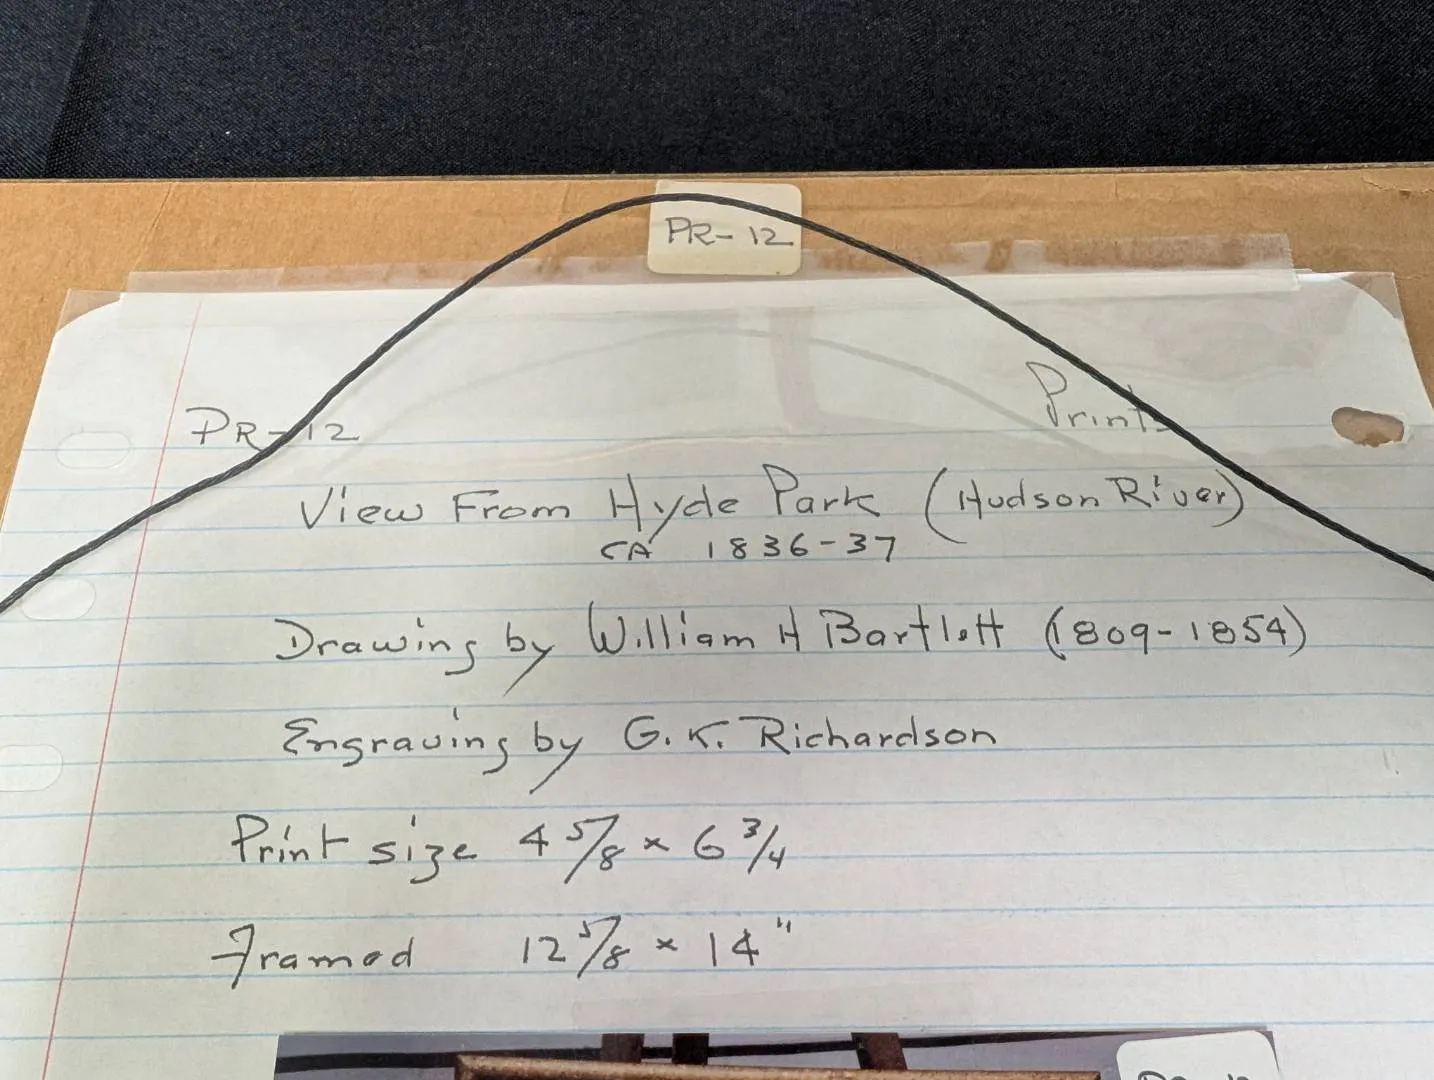 PR-12
PR-12 Prints
View From Hyde Park (Hudson River)
CA 1836-37
Drawing by William H Bartlett (1809-1854)
Engraving by G. K. Richardson
Print size 4 5/8 x 6 3/4
Framed 12 5/8 x 14"